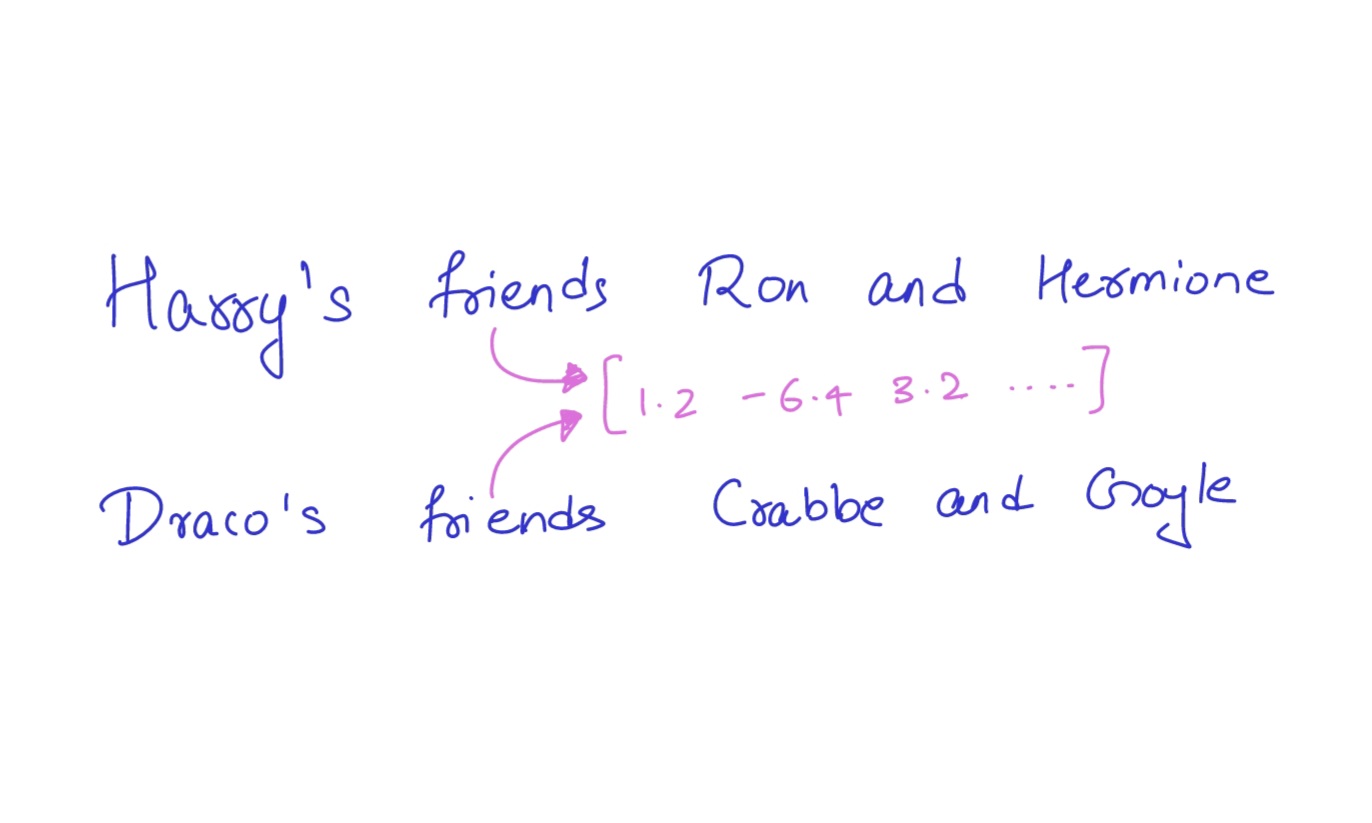 Harry's friends Ron and Hermione
[1.2 -6.4 3.2 ....]
Draco's friends Crabbe and Goyle